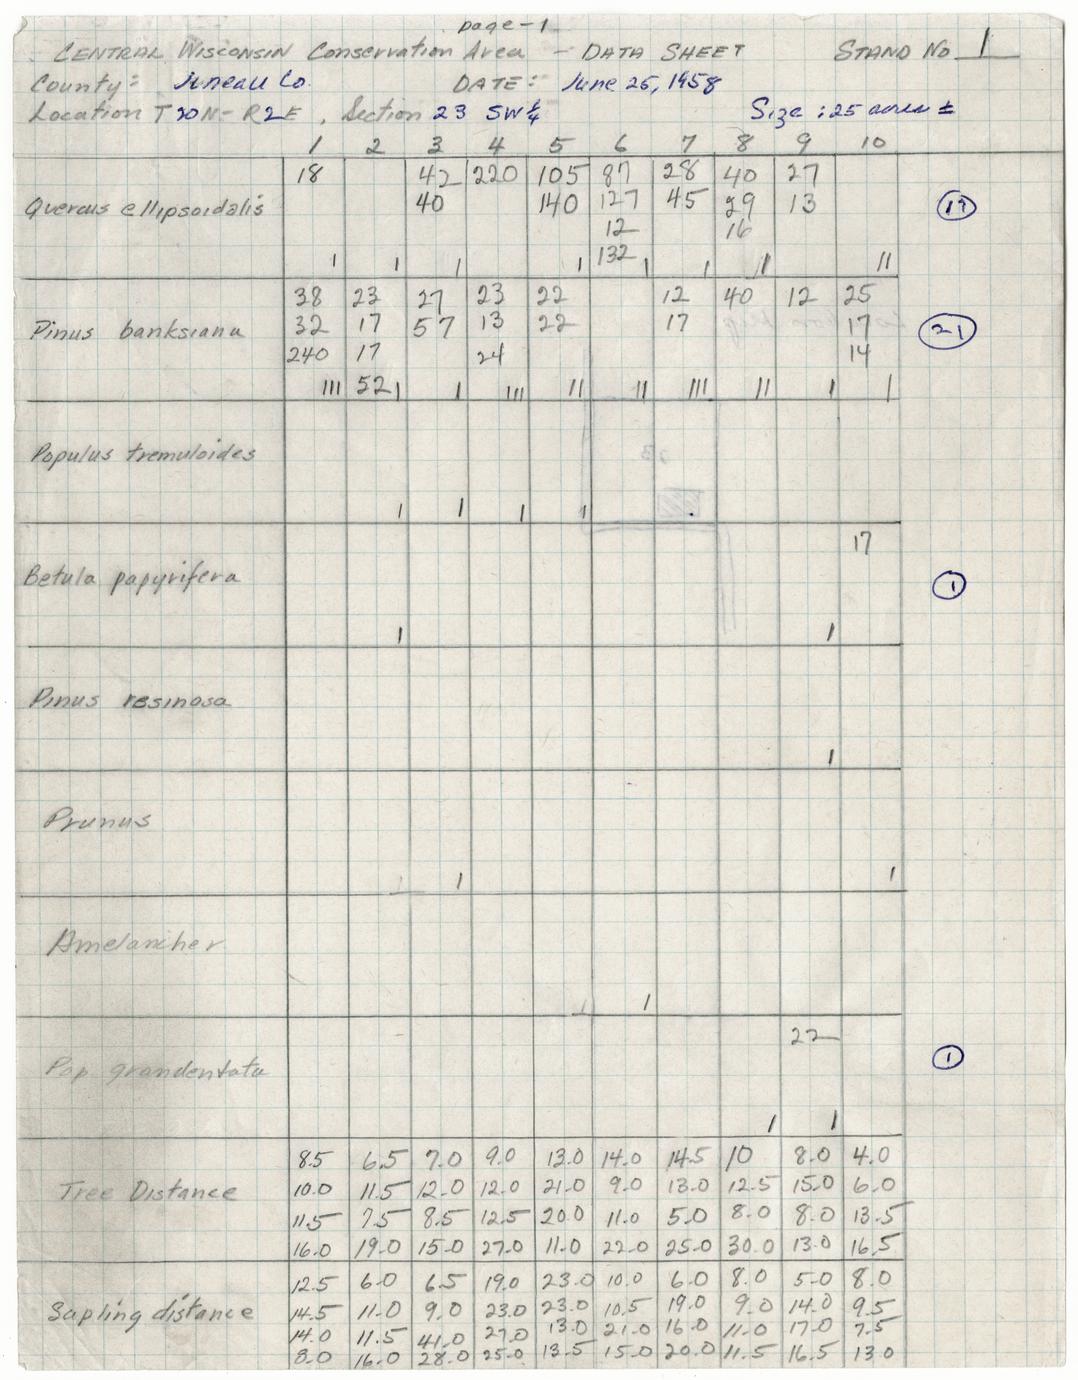 page-1
CENTRAL WISCONSIN Conservation Area - DATA SHEET STAND No 1
County: Juneau Co. DATE: June 26, 1958
Location T20N-R2E, Section 23 SW¼ Size: 25 acres ±
1 2 3 4 5 6 7 8 9 10
18 42 220 105 87 28 40 27
Quercus ellipsoidalis 40 140 127 45 29 13 17
12 16
132
1 1 1 1 1 1 11 11
38 23 27 23 22 12 40 12 25
Pinus banksiana 32 17 57 13 22 17 17 21
240 17 24 14
111 52 1 1 111 11 11 1111 11 1 1
Populus tremuloides
1 1 1 1
17
Betula papyrifera 1
1 1
Pinus resinosa
1
Prunus
1 1 1
Amelancher
1 1
22
Pop grandentata 1
1 1
8.5 6.5 7.0 9.0 13.0 14.0 14.5 10 8.0 4.0
Tree Distance 10.0 11.5 12.0 12.0 21.0 9.0 13.0 12.5 15.0 6.0
11.5 7.5 8.5 12.5 20.0 11.0 5.0 8.0 8.0 13.5
16.0 19.0 15.0 27.0 11.0 22.0 25.0 30.0 13.0 16.5
12.5 6.0 6.5 19.0 23.0 10.0 6.0 8.0 5.0 8.0
Sapling distance 14.5 11.0 9.0 23.0 23.0 10.5 19.0 9.0 14.0 9.5
14.0 11.5 41.0 27.0 13.0 21.0 16.0 11.0 17.0 7.5
8.0 16.0 28.0 25.0 13.5 15.0 20.0 11.5 16.5 13.0